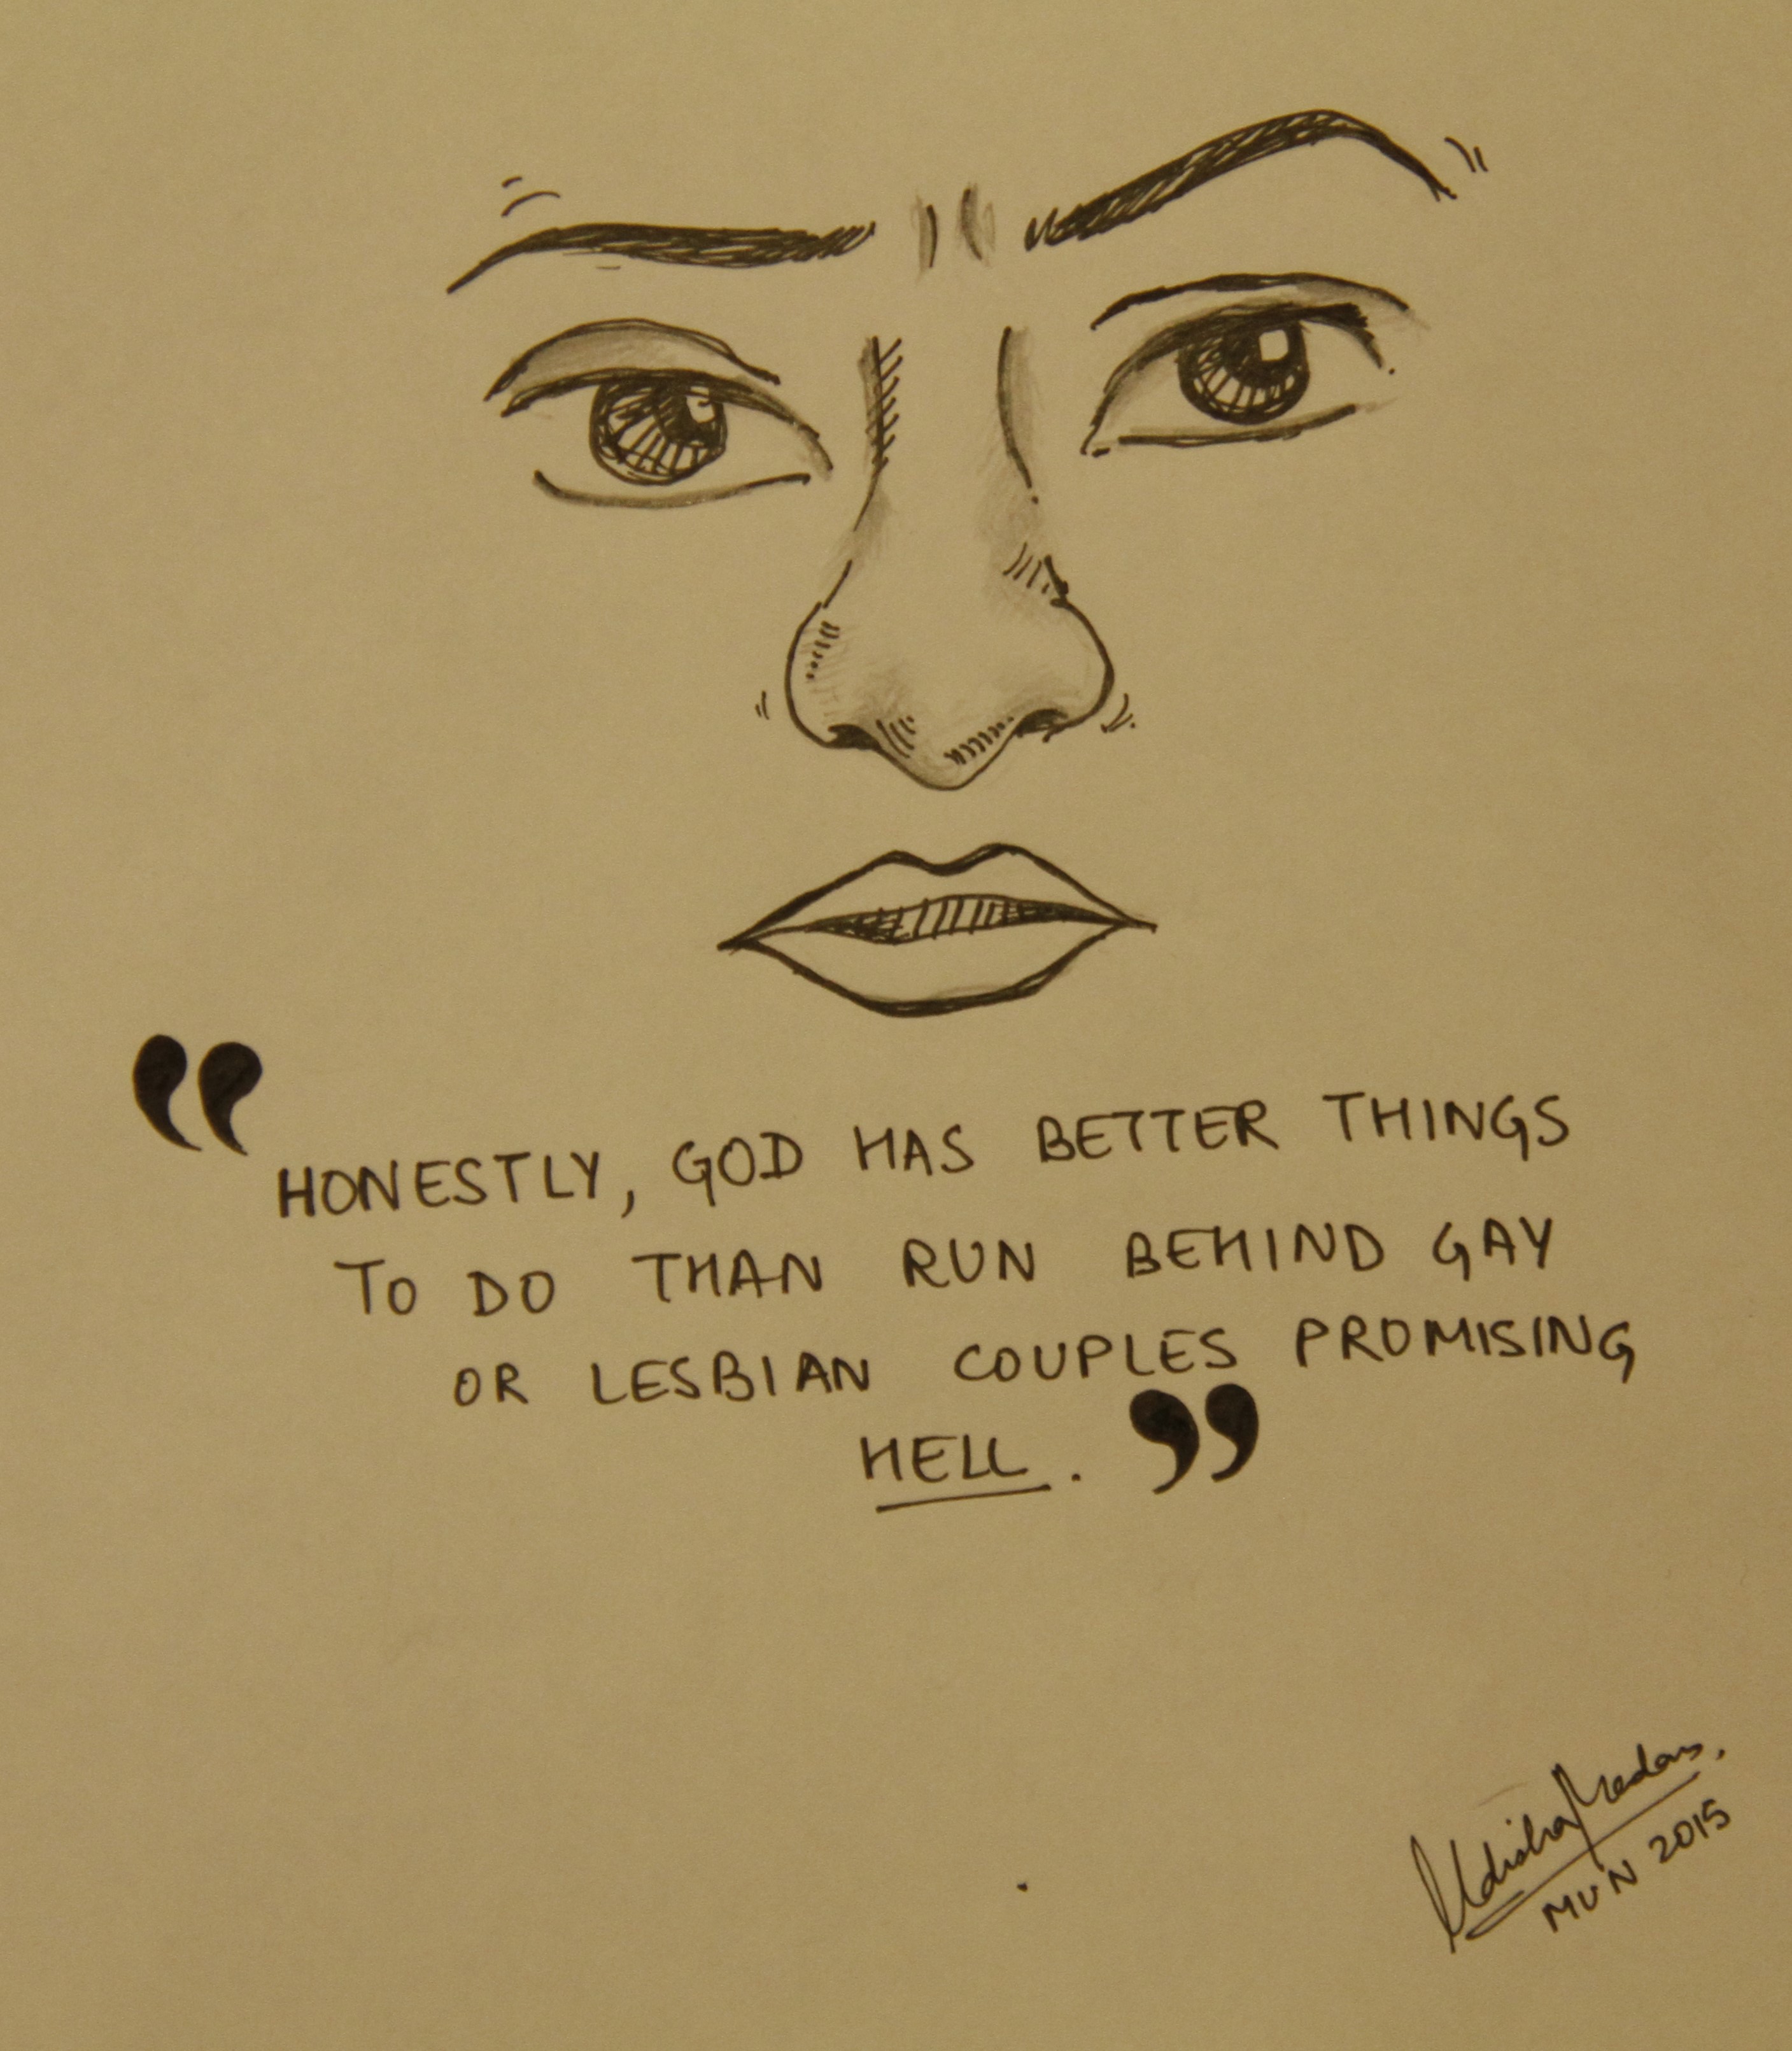 “HONESTLY, GOD HAS BETTER THINGS
TO DO THAN RUN BEHIND GAY
OR LESBIAN COUPLES PROMISING
HELL.”
MUN 2015